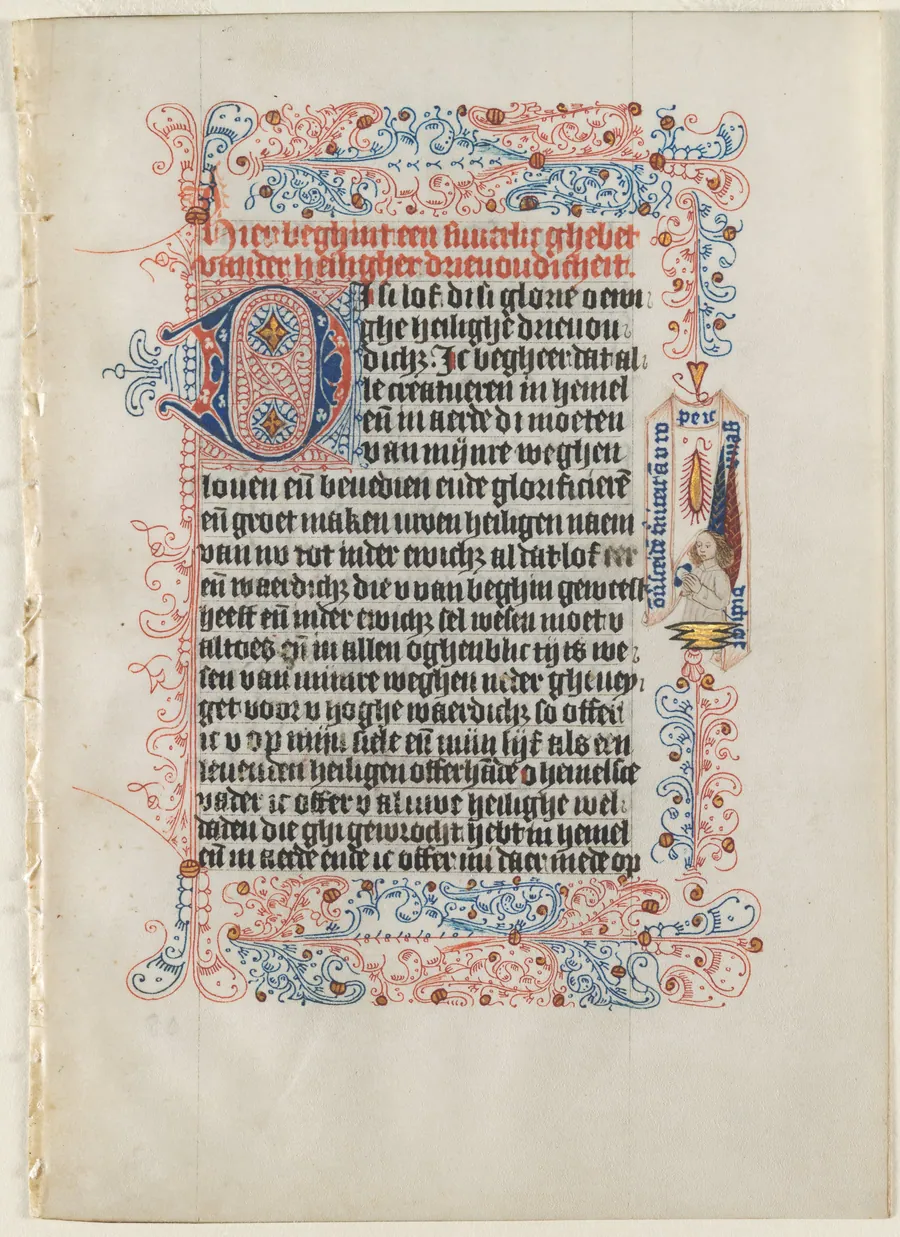 Hier beghint een suuerlic ghebet
vander heiligher drieuoudicheit.
DI si lof. di si glorie o ewi
ghe heilighe drieuou
dichz. Ic begheer dat al
le creatueren in hemel
eñ in aerde di moeten
van mijnre weghen
louen eñ benedien ende glorificierē
eñ groet maken uwen heiligen naem
van nv tot inder ewichz al dat lof eer
eñ waerdichz die v van beghin geweest
heeft eñ inder ewichz sel wesen moet v
altoes eñ in allen oghenblic tijts we
sen van minre weghen neder gheney
get voor v hoghe waerdichz so offer
ic v op mijn siele eñ mijn lijf als een
leuenden heiligen offerhāde o hemelsce
vader ic offer v al uwe heilighe wel
daden die ghi gewrocht hebt in hemel
eñ in aerde ende ic offer mi daer mede op